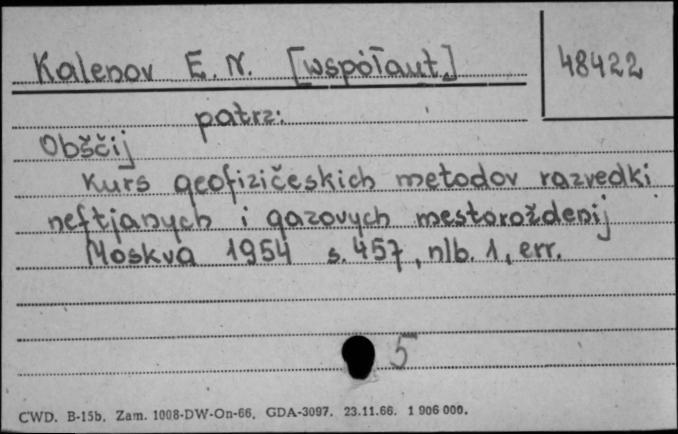 Kalenov E. N. [współaut.]
48422
patrz:
Obščij
kurs geofizičeskich metodov razvedki
neftjanych i gazovych mestoroždenij
Moskva 1954 s. 457, nlb. 1, err.
5
CWD. B-15b. Zam. 1008-DW-On-66. GDA-3097. 23.11.66. 1 906 000.